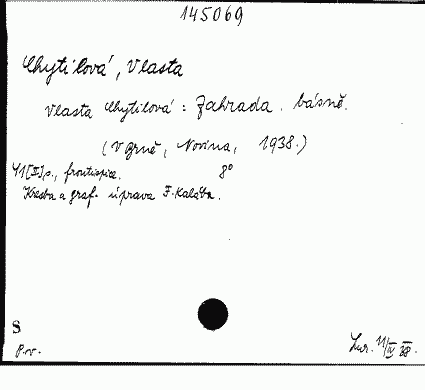 145069
Chytilová, Vlasta
Vlasta Chytilová: Zahrada. básně.
(V Brně, Novina, 1938.)
41[II]s., frontispice. 8°
Kresba a graf. úprava F. Kalába.
S
P.v.
11/IV 38.